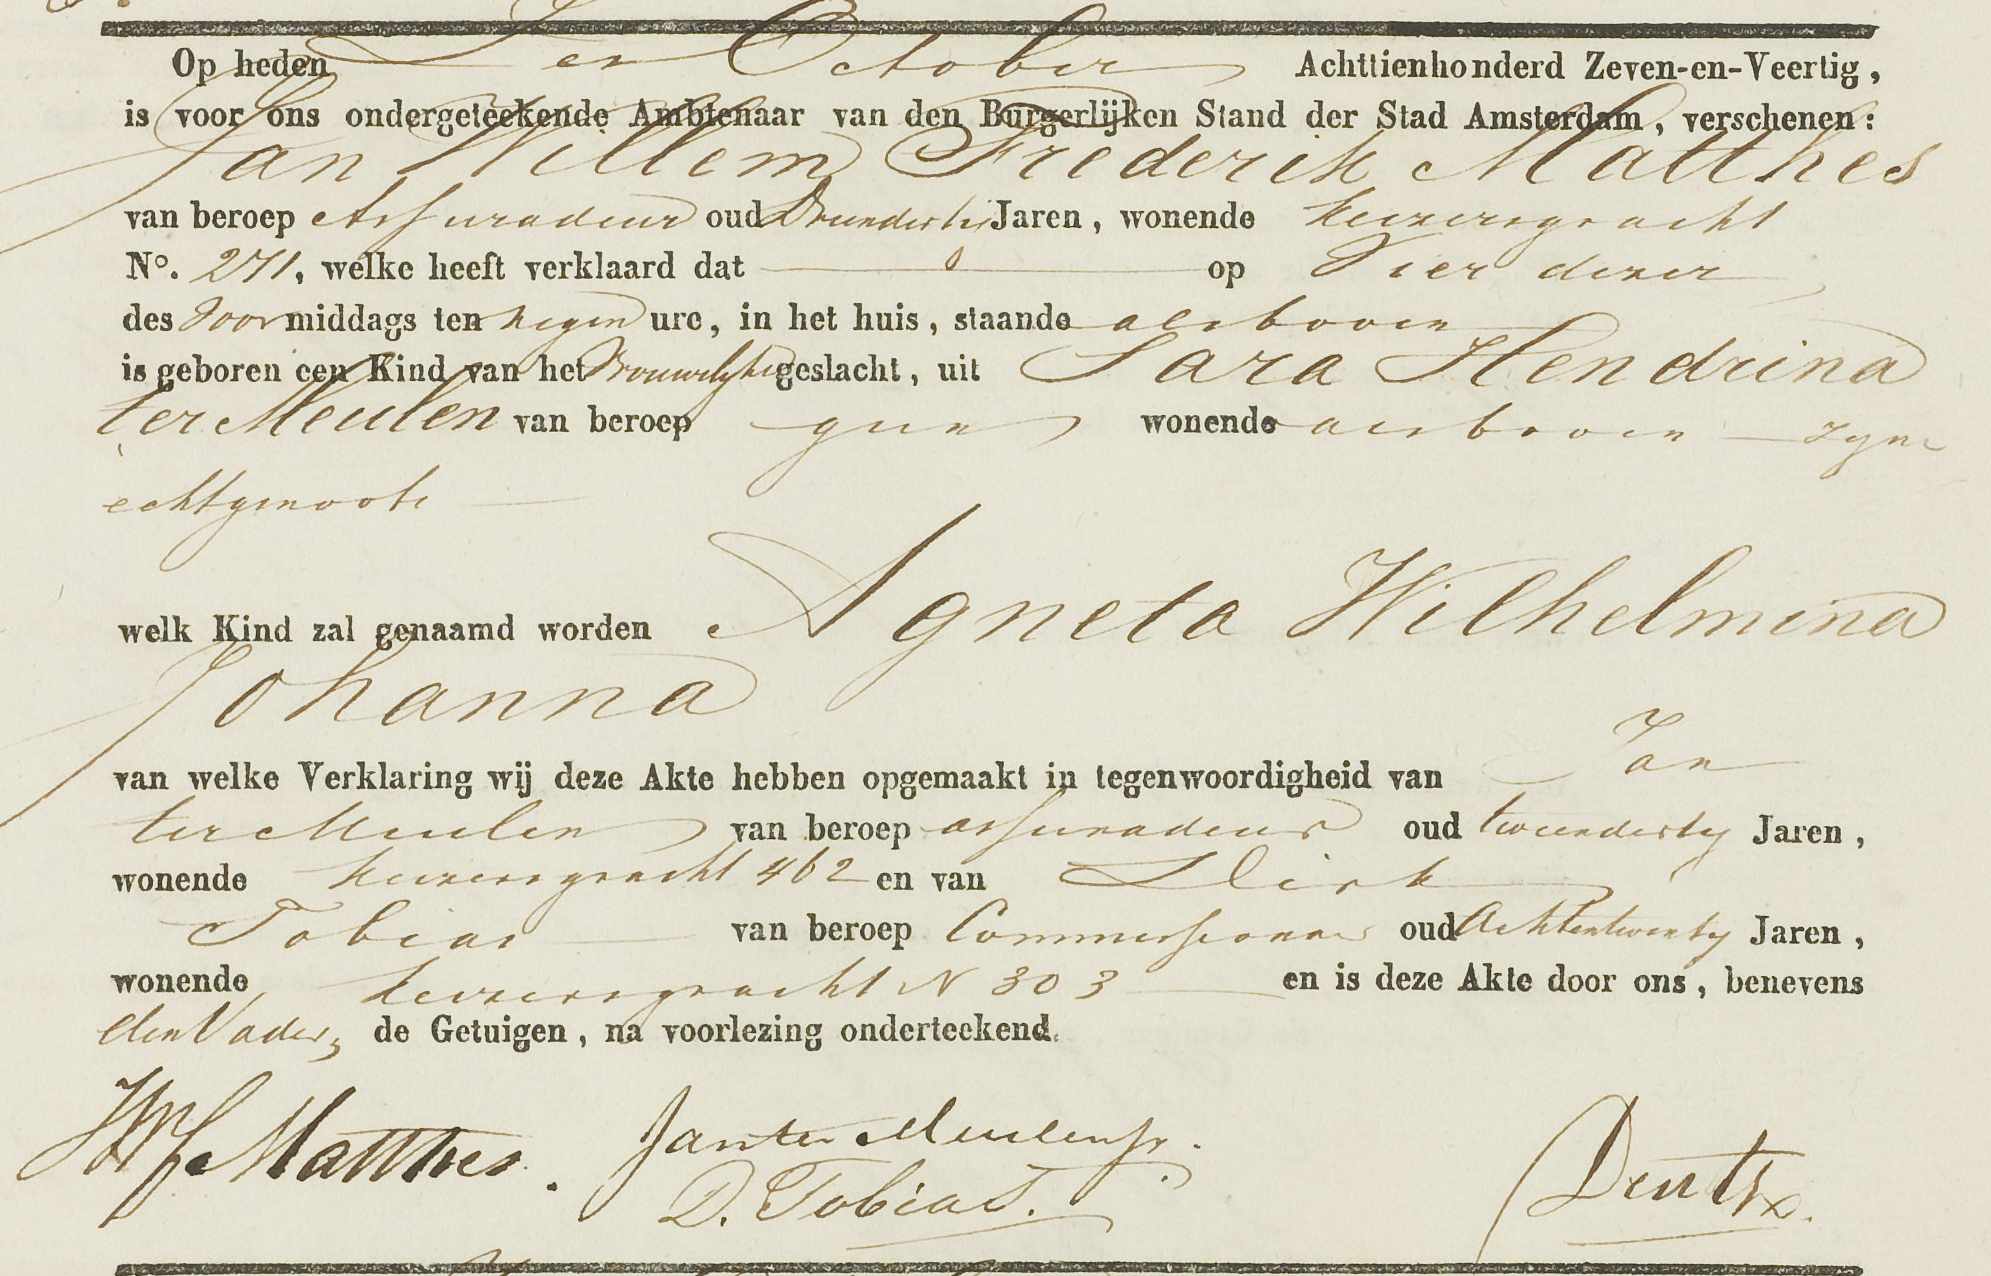 Op heden Zes October Achttienhonderd Zeven-en-Veertig,
is voor ons ondergeteekende Ambtenaar van den Burgerlijken Stand der Stad Amsterdam, verschenen:
Jan Willem Frederik Matthes
van beroep Assuradeur oud Drieendertig Jaren, wonende keizersgracht
No. 271, welke heeft verklaard dat op Vier dezer
des Voormiddags ten negen ure, in het huis, staande als boven
is geboren een Kind van het Vrouwelyke geslacht, uit Sara Hendrina
ter Meulen van beroep geen wonende als boven zyne
echtgenoote
welk Kind zal genaamd worden Agneta Wilhelmina
Johanna
van welke Verklaring wij deze Akte hebben opgemaakt in tegenwoordigheid van Jan
ter Meulen van beroep assuradeur oud tweendertig Jaren,
wonende keizersgracht 462 en van Dirk
Tobias van beroep Commissionnair oud Achtentwintig Jaren,
wonende keizersgracht N 303 en is deze Akte door ons, benevens
den Vader, de Getuigen, na voorlezing onderteekend.
JWF Matthes. Jan ter Meulen Jr.
D. Tobias. Dentz